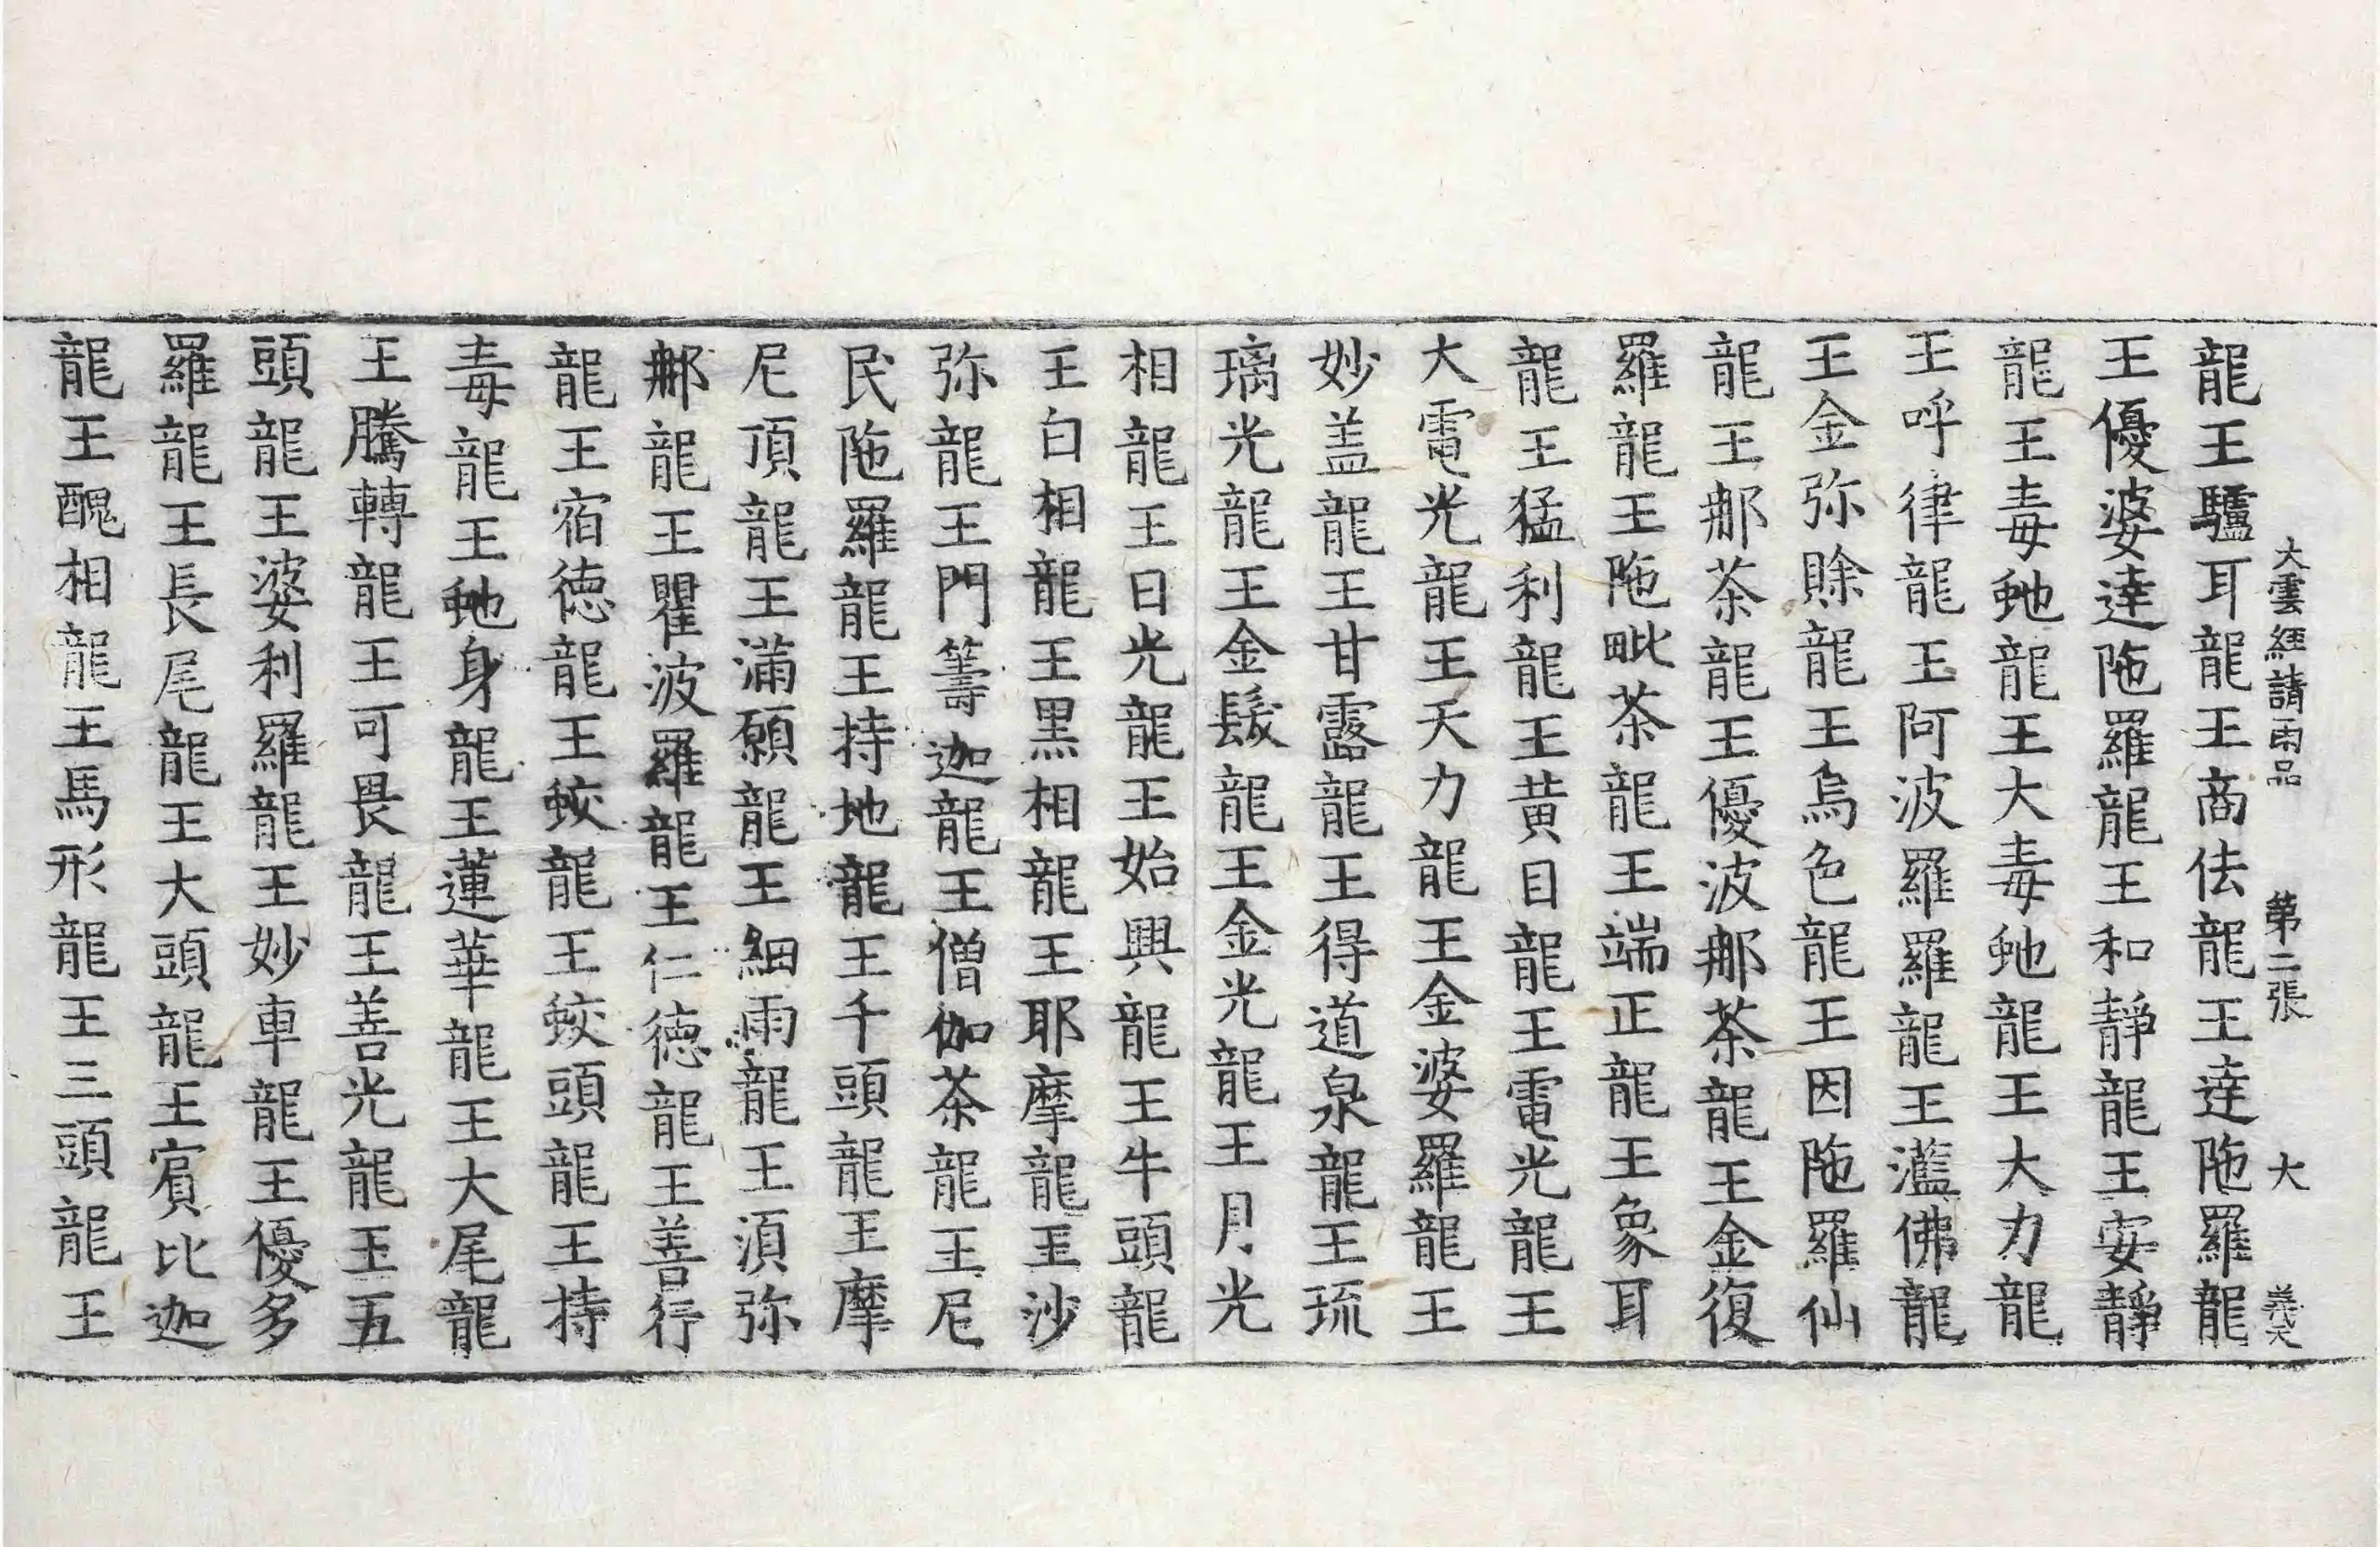 大雲經請雨品 第二張 大
龍王驢耳龍王商佉龍王達陁羅龍
王優婆達陁羅龍王和靜龍王安靜
龍王毒虵龍王大毒虵龍王大力龍
王呼律龍王阿波羅羅龍王灆佛龍
王金弥賒龍王烏色龍王因陁羅仙
龍王那茶龍王優波那茶龍王金復
羅龍王陁毗茶龍王端正龍王象耳
龍王猛利龍王黃目龍王電光龍王
大電光龍王天力龍王金婆羅龍王
妙盖龍王甘露龍王得道泉龍王琉
璃光龍王金髮龍王金光龍王月光
相龍王日光龍王始興龍王牛頭龍
王白相龍王黑相龍王耶摩龍王沙
弥龍王門籌迦龍王僧伽茶龍王尼
民陁羅龍王持地龍王千頭龍王摩
尼頂龍王滿願龍王細雨龍王湏弥
那龍王瞿波羅龍王仁德龍王善行
龍王宿德龍王蛟龍王蛟頭龍王持
毒龍王虵身龍王蓮華龍王大尾龍
王騰轉龍王可畏龍王善光龍王五
頭龍王婆利羅龍王妙車龍王優多
羅龍王長尾龍王大頭龍王賔比迦
龍王醜相龍王馬形龍王三頭龍王